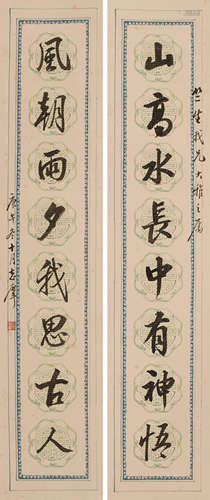 山高水長中有神悟
竺生我兄大雅之屬
風朝雨夕我思古人
庚午冬十月志摩